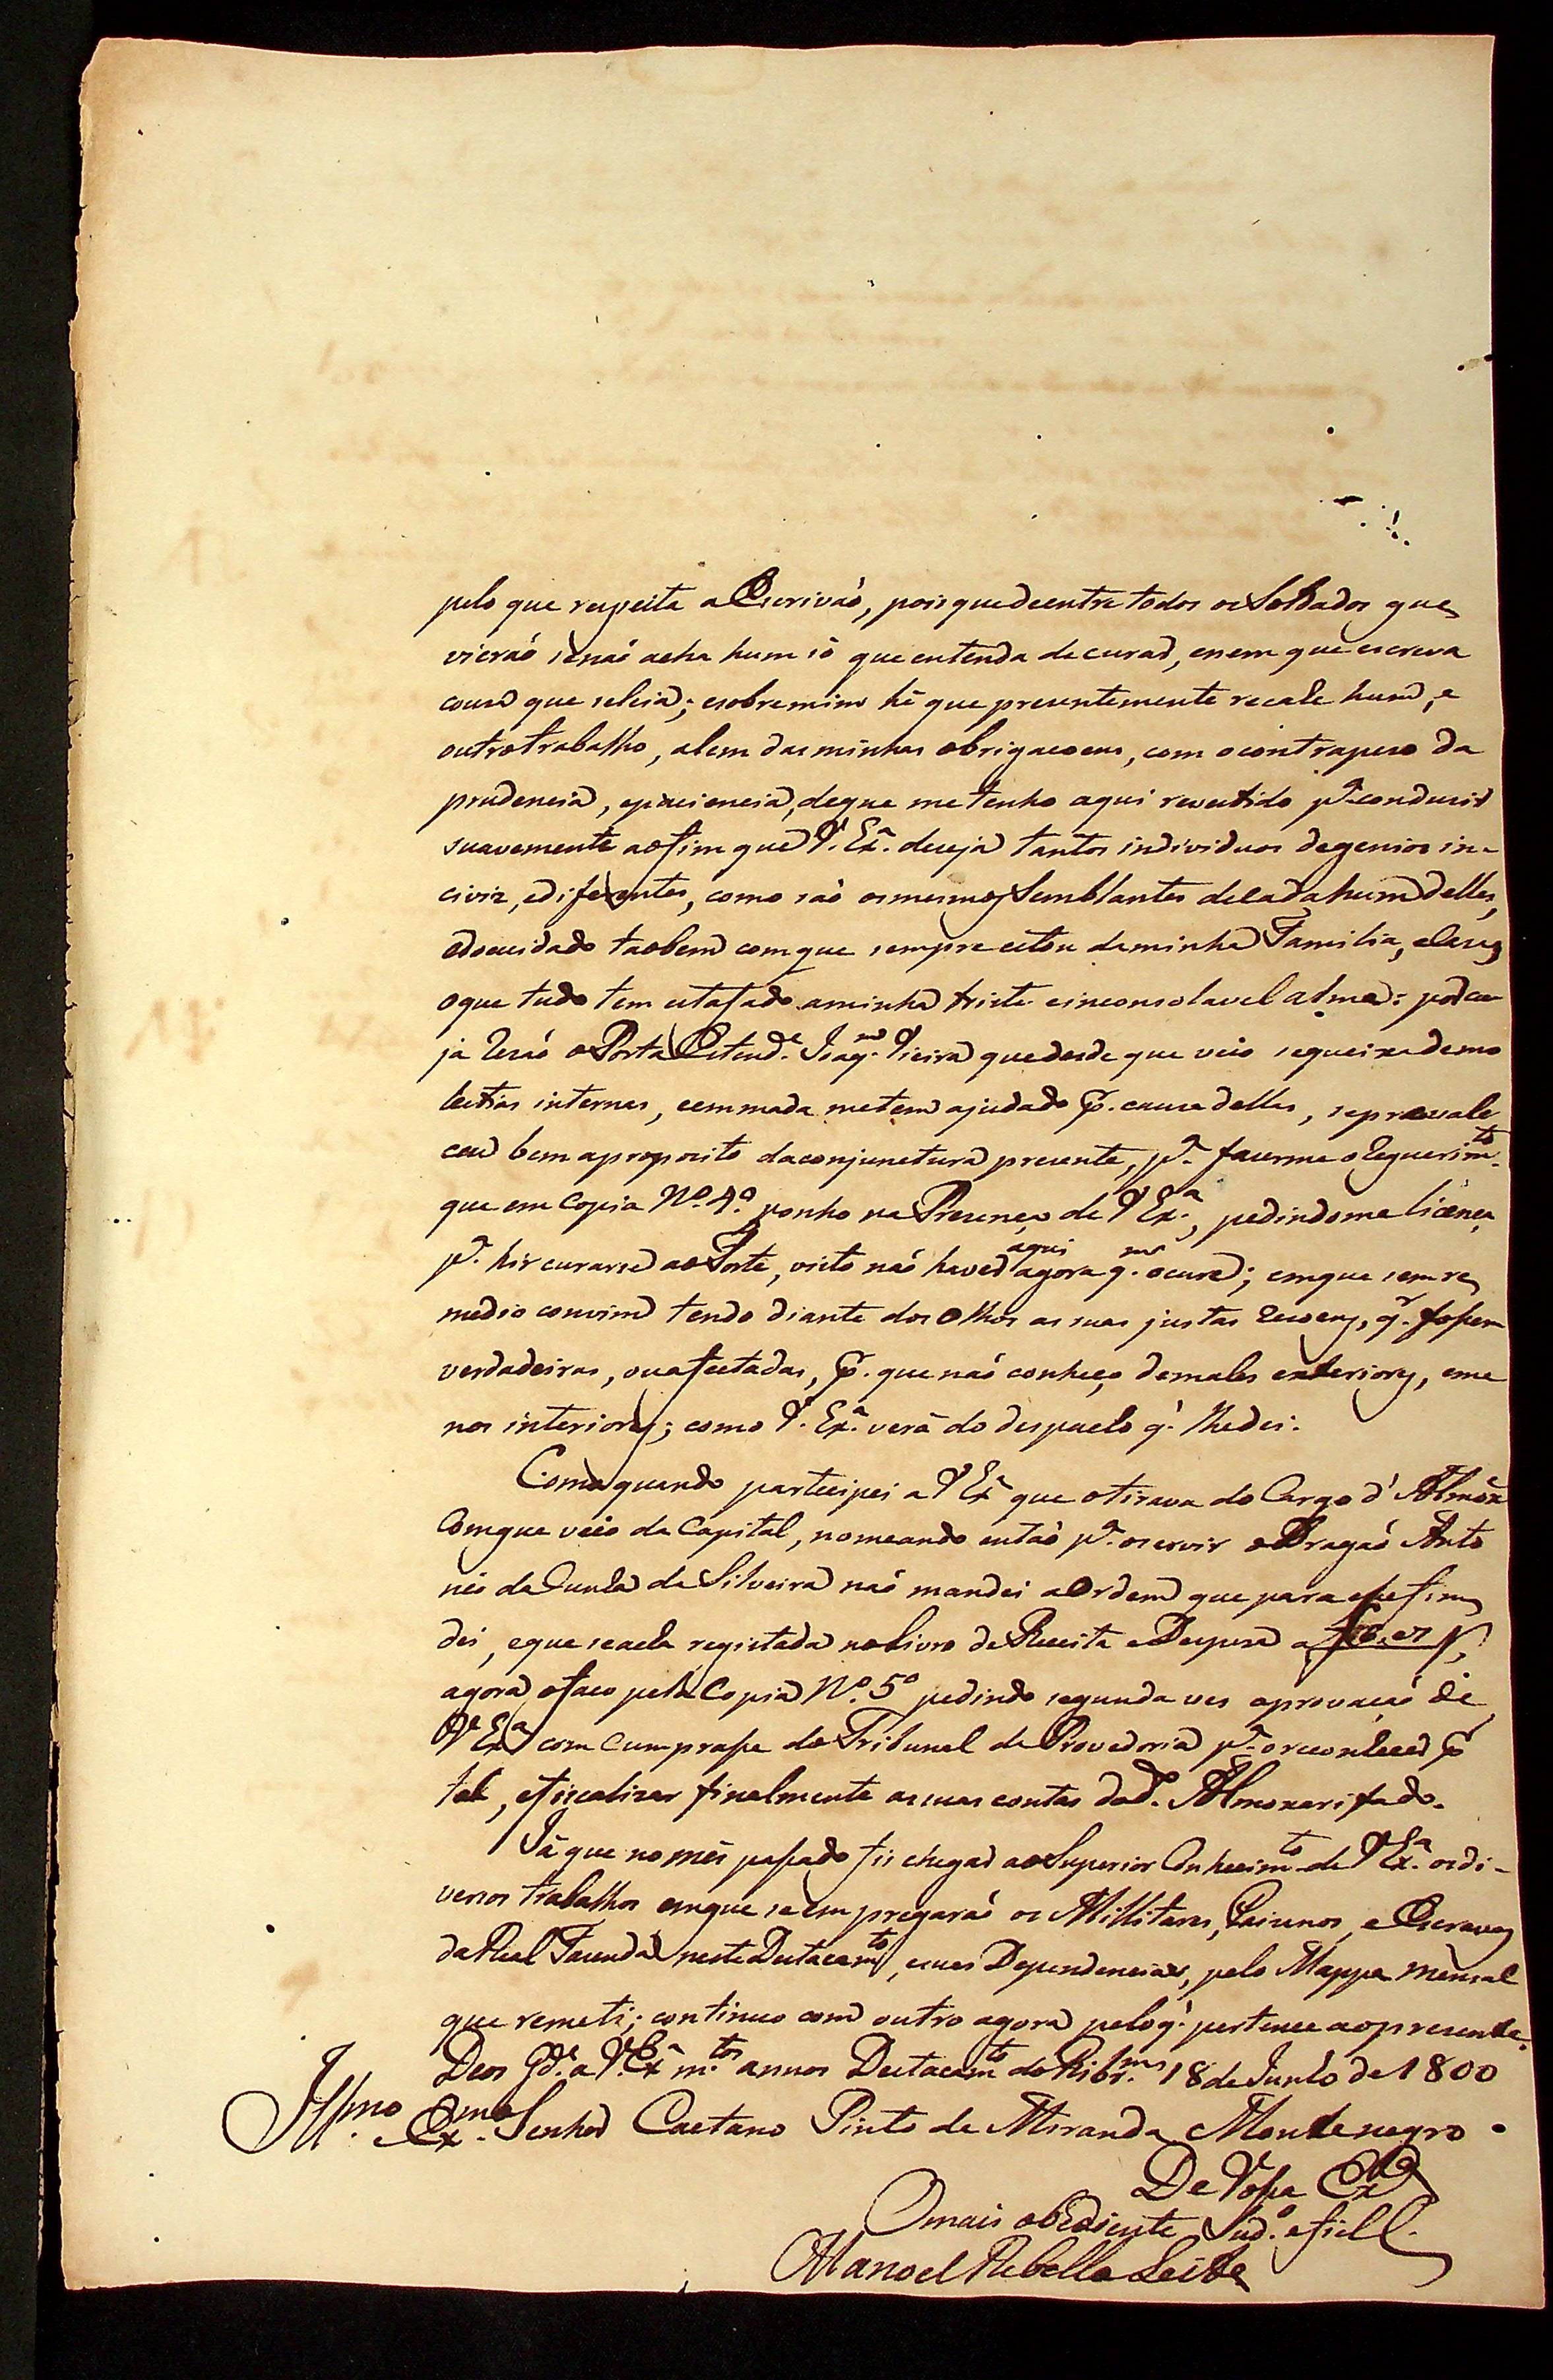 pelo que respeita a Escrivaõ, pois que de entre todos os Soldados que
vieraõ se naõ acha hum só que entenda de curar, e nem que escreva
cousa que se leia; e sobre mim hé que presentemente recahe hum, e
outro trabalho, alem das minhas obrigacoens, com o contrapeso da
prudencia, e paciencia, de que me tenho aqui revestido p.ª condusir
suavemente ao fim que V. Ex.ª deseja tantos individuos de genios in-
civiz, e diferentes, como saõ os mesmos Semblantes de cada hum delles,
e do cuidado taobem com que sempre estou da minha Familia, e Casa,
o que tudo tem estafado a minha triste e inconsolavel alma: por cu
ja rezaõ o Porta Estend.e Joaq.m Vieira que desde que veio se queixa de mo
lestias internas, e em nada me tem ajudado p. causa dellas, se prevale
ceu bem a proposito da conjunctura presente, p.ª fazerme o Requerim.to
que em Copia N.º 4.º ponho na Presença de V Ex.ª, pedindome licença
p.ª hir curarse ao Forte, visto naõ haver aqui agora q.m o cure; em que sem re
medio convim tendo diante dos Olhos as suas justas rezoens, q.r fossem
verdadeiras, ou afectadas, p. que naõ conheço de males exteriores, e me
nos interiores; como V. Ex.ª verá do despacho q. lhe dei.
Como quando participei a V Ex.ª que o tirava do Cargo d' Almox.e
Com que veio da Capital, nomeando entaõ p.ª o servir o Dragaõ Anto
nio da Cunha da Silveira naõ mandei a Ordem que para esse fim
dei, e que se acha registada no Livro de Receita e Despesa a f
agora o faço pela Copia N.º 5.º pedindo segunda ves aprovaçaõ de
V Ex.ª com Cumprasse do Tribunal da Provedoria p.ª o reconhecer p
tal, e fiscalizar finalmente as suas contas do d.º Almoxarifado.
Já que no mês passado fis chegar ao Superior Conhecim.to de V Ex.ª os di-
versos trabalhos em que se empregaraõ os Millitares, Paisanos, e Escravos
da Real Fazenda neste Destacam.to, e suas Dependencias, pelo Mappa mensal
que remeti; continuo com outro agora pelo q. pertence ao presente.
Deos G.de a V. Ex.ª m.tos annos Destacam.to do Rib.m 18 de Junho de 1800
Ill.mo e Ex.mo Senhor Caetano Pinto de Miranda Montenegro.
De Vossa Ex.ª
O mais obediente Sud.º e fiel C.
Manoel Rebello Leite